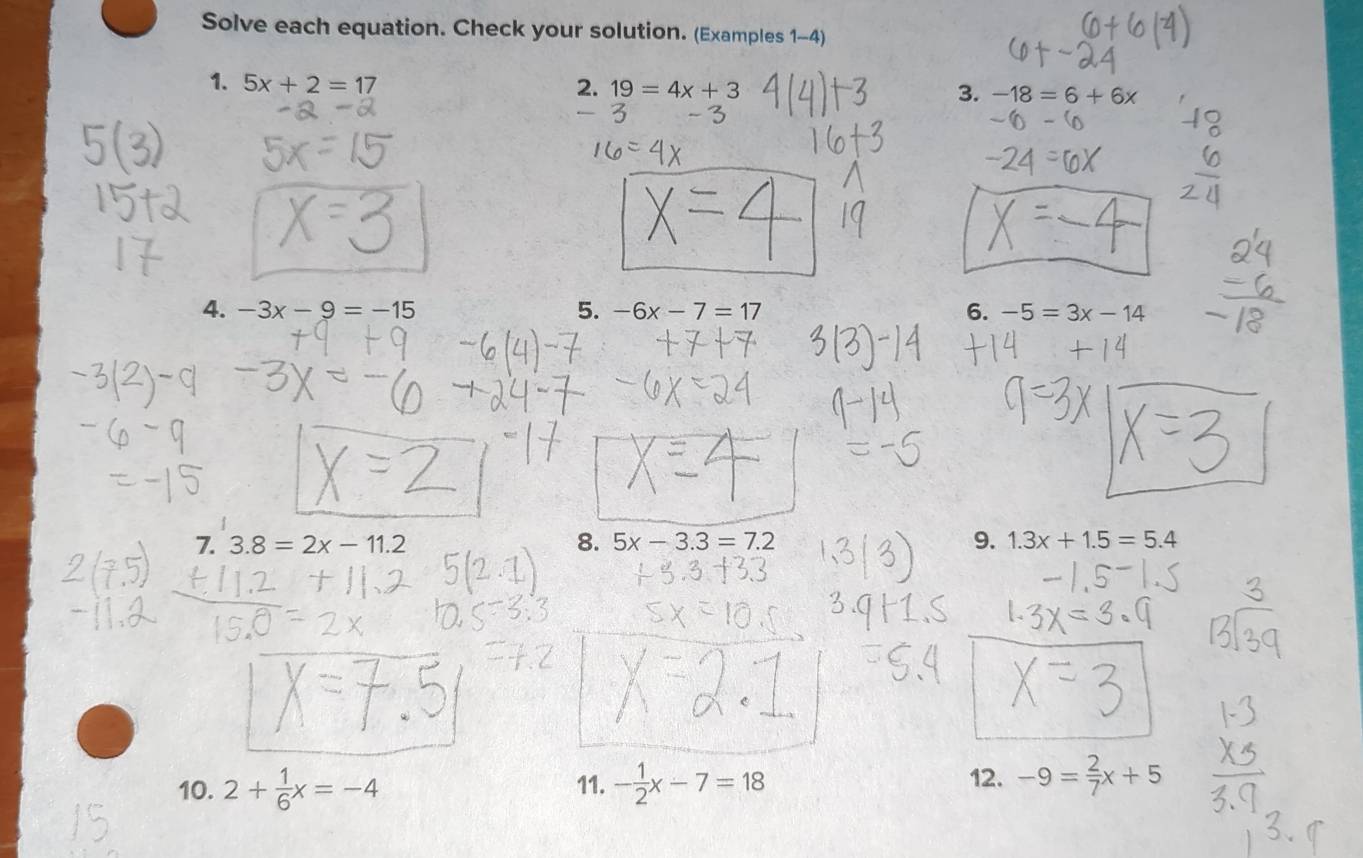 Solve each equation. Check your solution. (Examples 1–4)
6+6(4)
6+-24
1. 5x + 2 = 17
-2 -2
5(3)
15+2
17
5x=15
x=3
2. 19 = 4x + 3
- 3 -3
16=4x
x=4
4(4)+3
16+3
^
19
3. −18 = 6 + 6x
-6 -6
-24=6x
x=-4
18
6
24
24
-6
-18
4. −3x − 9 = −15
+9 +9
-3(2)-9
-6-9
=-15
-3x=-6
x=2
5. −6x − 7 = 17
+7+7
-6(4)-7
+24-7
-17
-6x=24
x=4
6. −5 = 3x − 14
+14 +14
3(3)-14
9-14
=-5
9=3x
x=3
7. 3.8 = 2x − 11.2
1
+11.2 +11.2
2(7.5)
-11.2
15.0=2x
x=7.5
8. 5x − 3.3 = 7.2
+3.3 +3.3
5(2.1)
10.5-3.3
=7.2
5x=10.5
x=2.1
9. 1.3x + 1.5 = 5.4
-1.5 -1.5
1.3(3)
3.9+1.5
=5.4
1.3x=3.9
x=3
3
13)39
1.3
x3
3.9
10. 2 + 1/6x = −4
11. −1/2x − 7 = 18
12. −9 = 2/7x + 5
15